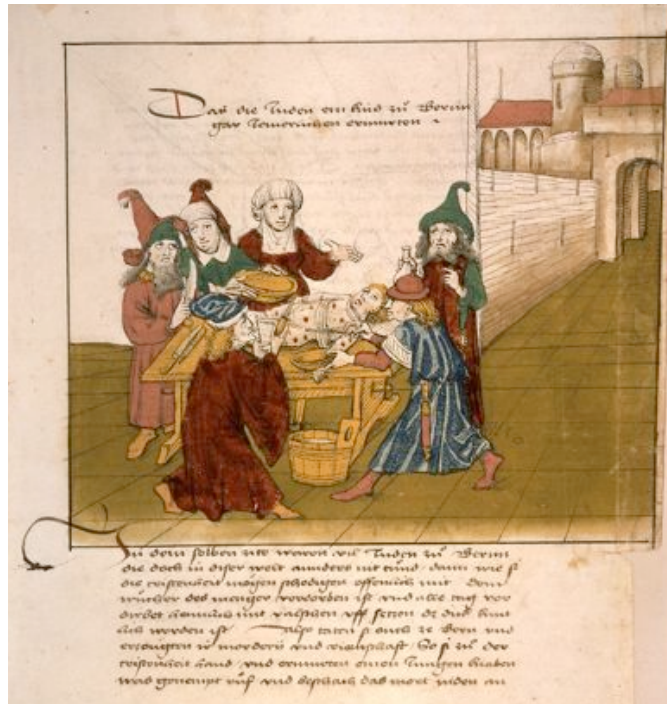 Das die Juden ein kind zů Bernn
gar Jemerlichen ermurten
In dem selben zite waren vil Juden zů Bernn
die doch in diser welt anders nit tůnd dann wie si
die cristenheit mögen schedigen offenlich mit dem
wůcher des menger verdorben ist und alle tag ver
dirbet heimlich mit valschen uff setzen
lich worden ist Also taten si ouch ze Bern und
erzougten ir mordery und vigentschaft So si zů der
cristenheit hand und ermurten einen Jungen knaben
was genempt růf und beschach das mort